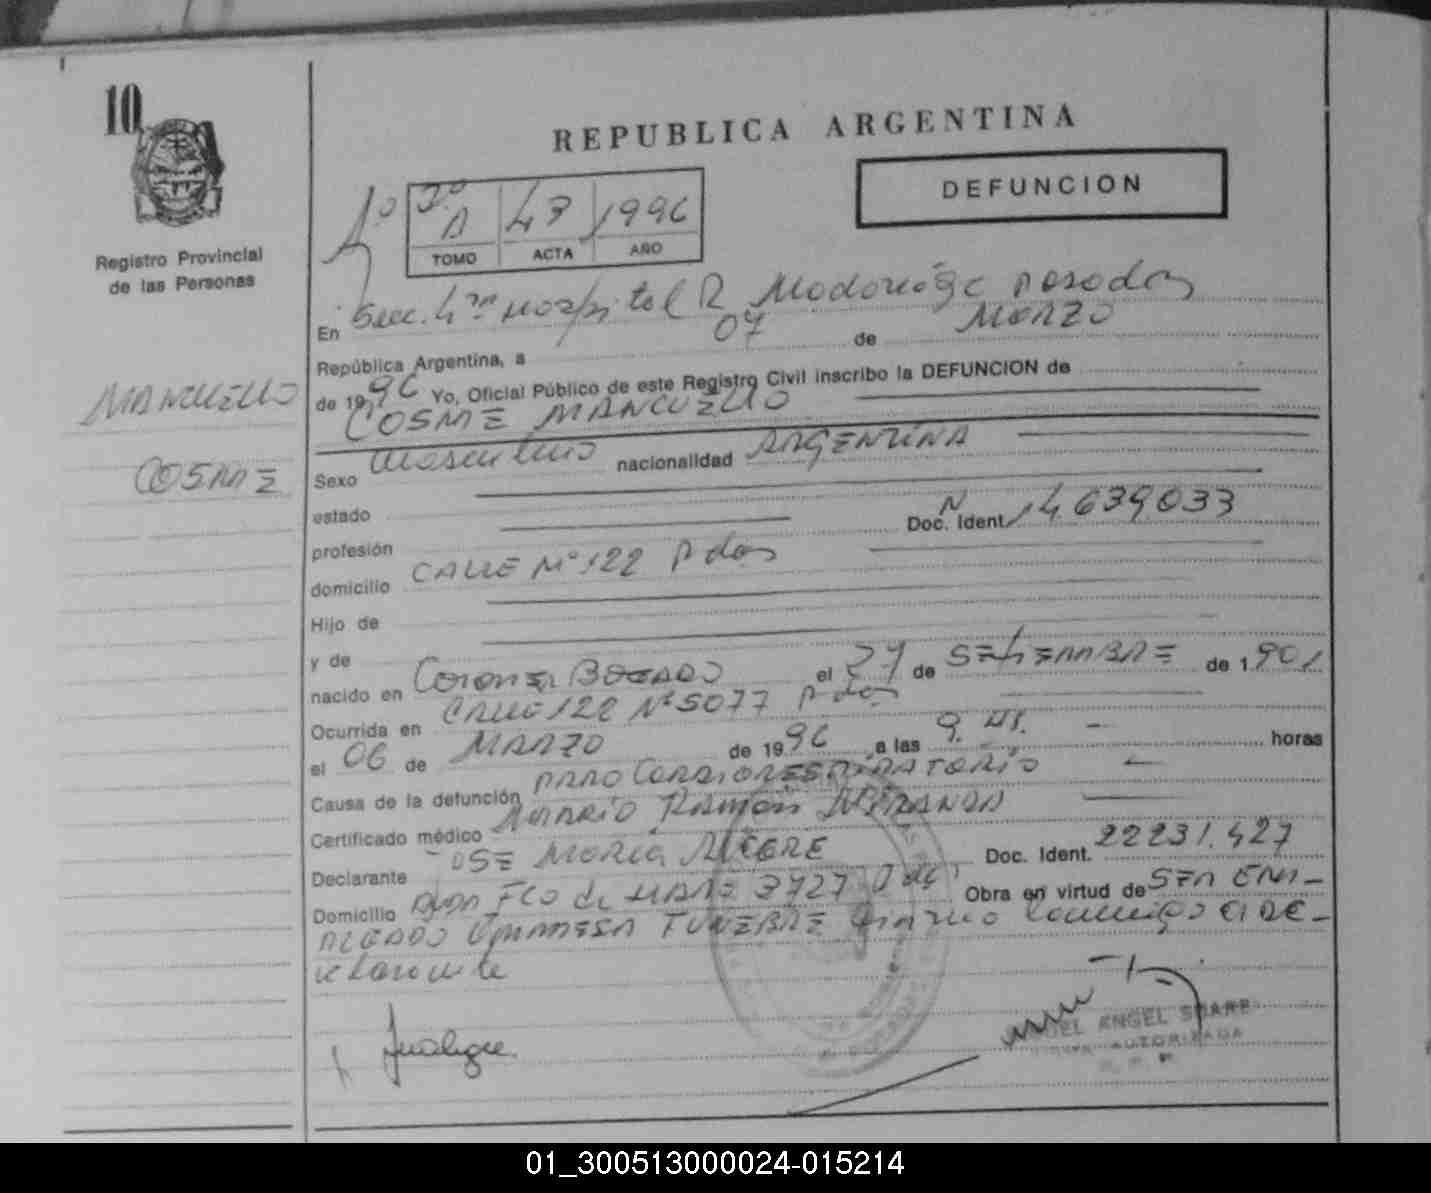 10
REPUBLICA ARGENTINA
DEFUNCION
A 43 1996
TOMO ACTA AÑO
Registro Provincial
de las Personas
En Secc. 4ta Hospital R Madariaga Posadas
República Argentina, a 07 de MARZO
de 1996 Yo, Oficial Público de este Registro Civil inscribo la DEFUNCION de
MANCUELLO
COSME MANCUELLO
COSME
Sexo Masculino nacionalidad ARGENTINA
estado
profesión Doc. Ident. 14639033
domicilio CALLE Nº 122 Pdas
Hijo de
y de
nacido en Coronel BOGADO el 27 de SETIEMBRE de 1.901
Ocurrida en CALLE 122 Nº 5077 Pdas
el 06 de MARZO de 1996 a las 9. Hs. horas
Causa de la defunción PARO CARDIORESPIRATORIO
Certificado médico MARIO Ramón MIRANDA
Declarante JOSE MARIA ALEGRE Doc. Ident. 22231.427
Domicilio Fco de HARO 3727 Pdas Obra en virtud de SER EM-
PLEADO EMPRESA FUNEBRE conmigo El DE-
clarante
ANGEL
AUTORIZADA
01_300513000024-015214